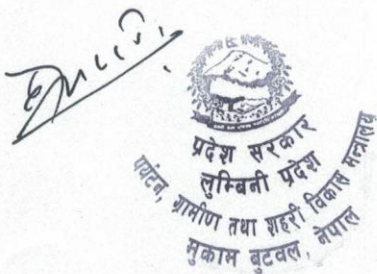 प्रदेश सरकार
लुम्बिनी प्रदेश
पर्यटन, ग्रामीण तथा शहरी विकास मन्त्रालय
मुकाम बुटवल, नेपाल